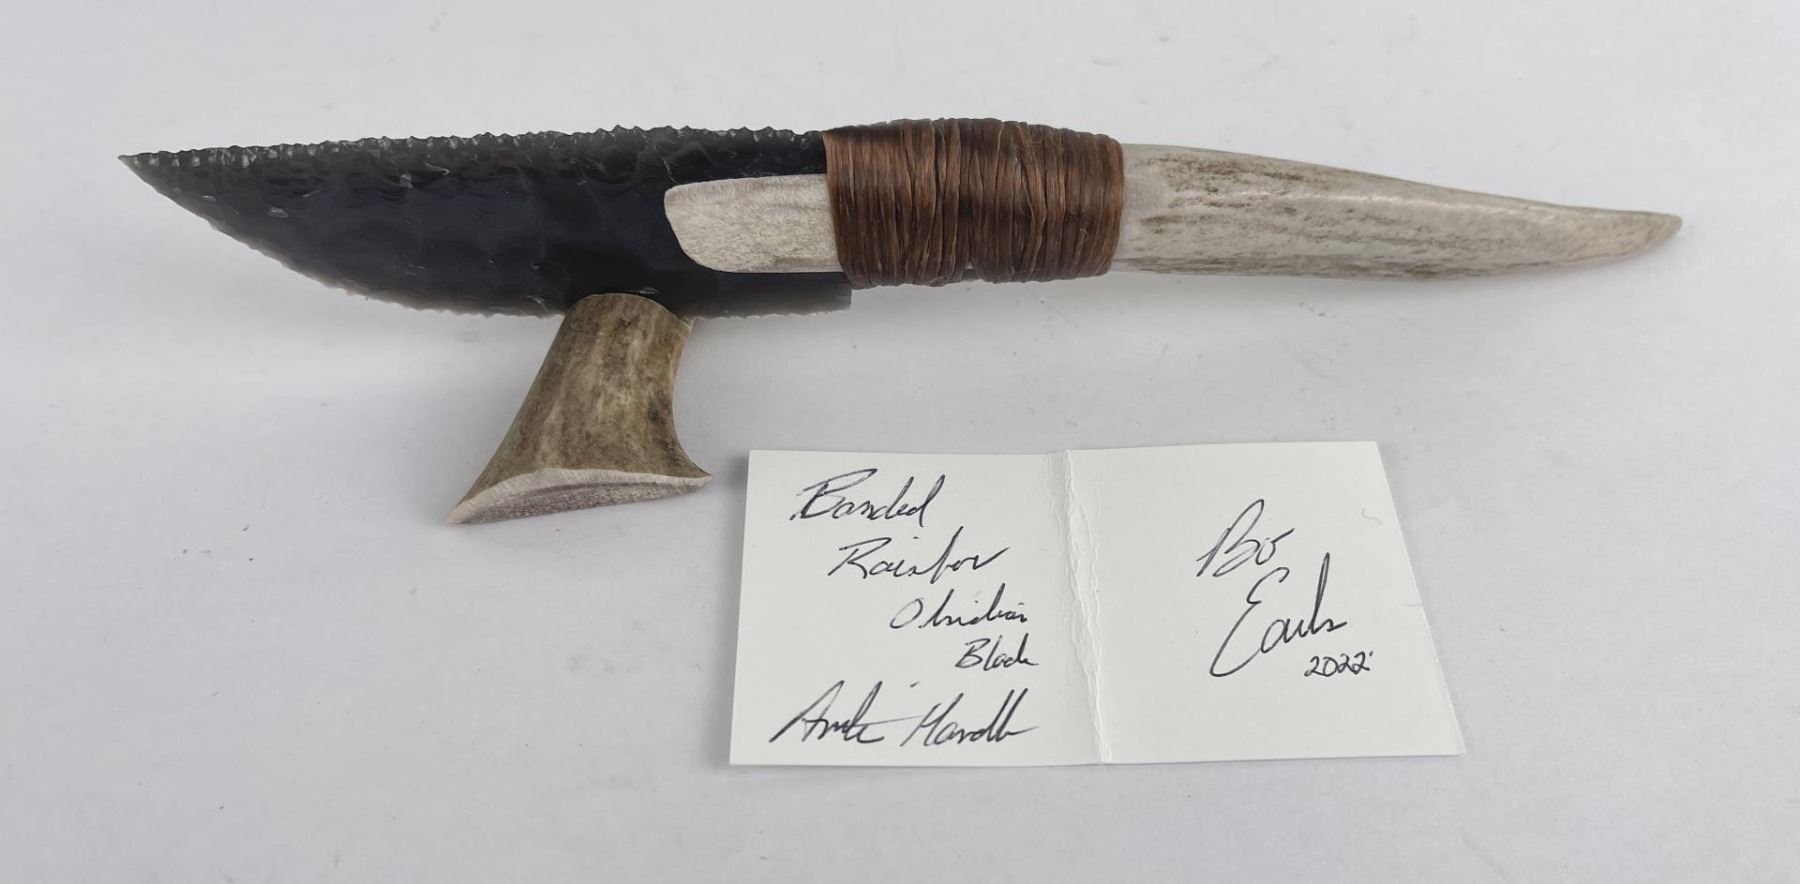 Banded
Rainbow
Obsidian
Blade
Antler Handle
Bo
Earls
2022